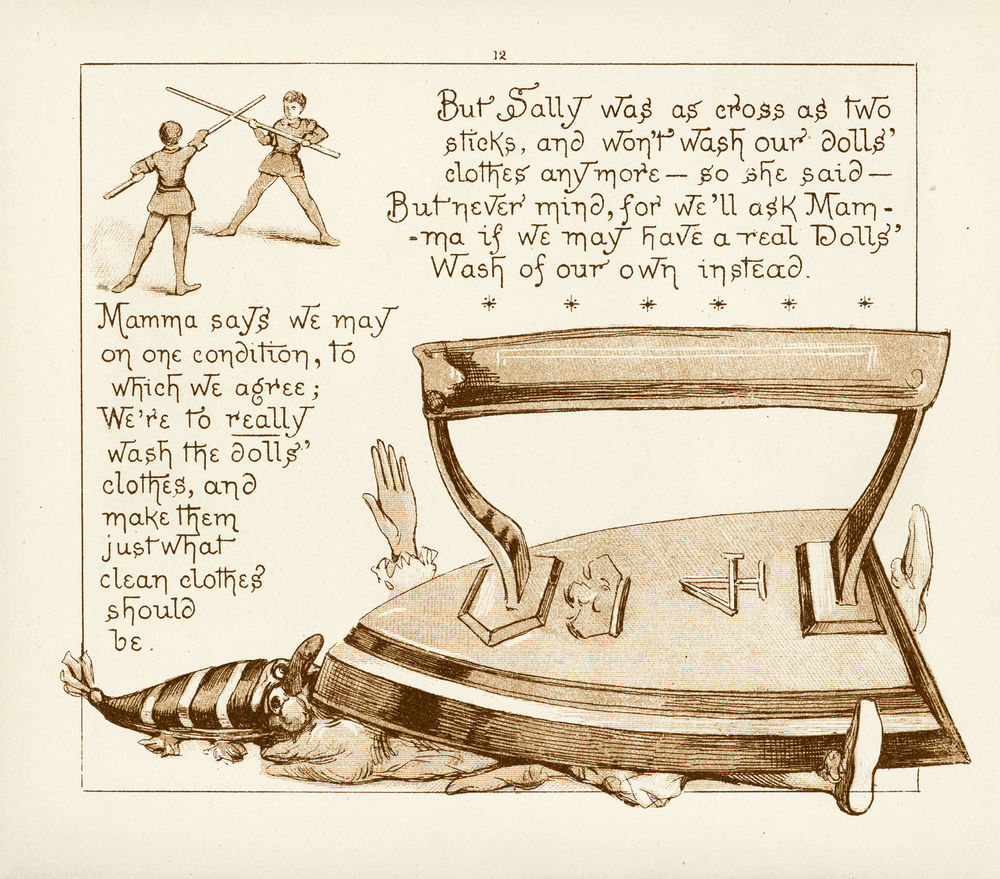 12
But Sally was as cross as two
sticks, and won't wash our dolls'
clothes anymore — so she said —
But never mind, for we'll ask Mam-
-ma if we may have a real Dolls'
Wash of our own instead.
* * * * * *
Mamma says we may
on one condition, to
which we agree;
We're to really
wash the dolls'
clothes, and
make them
just what
clean clothes
should
be.
4